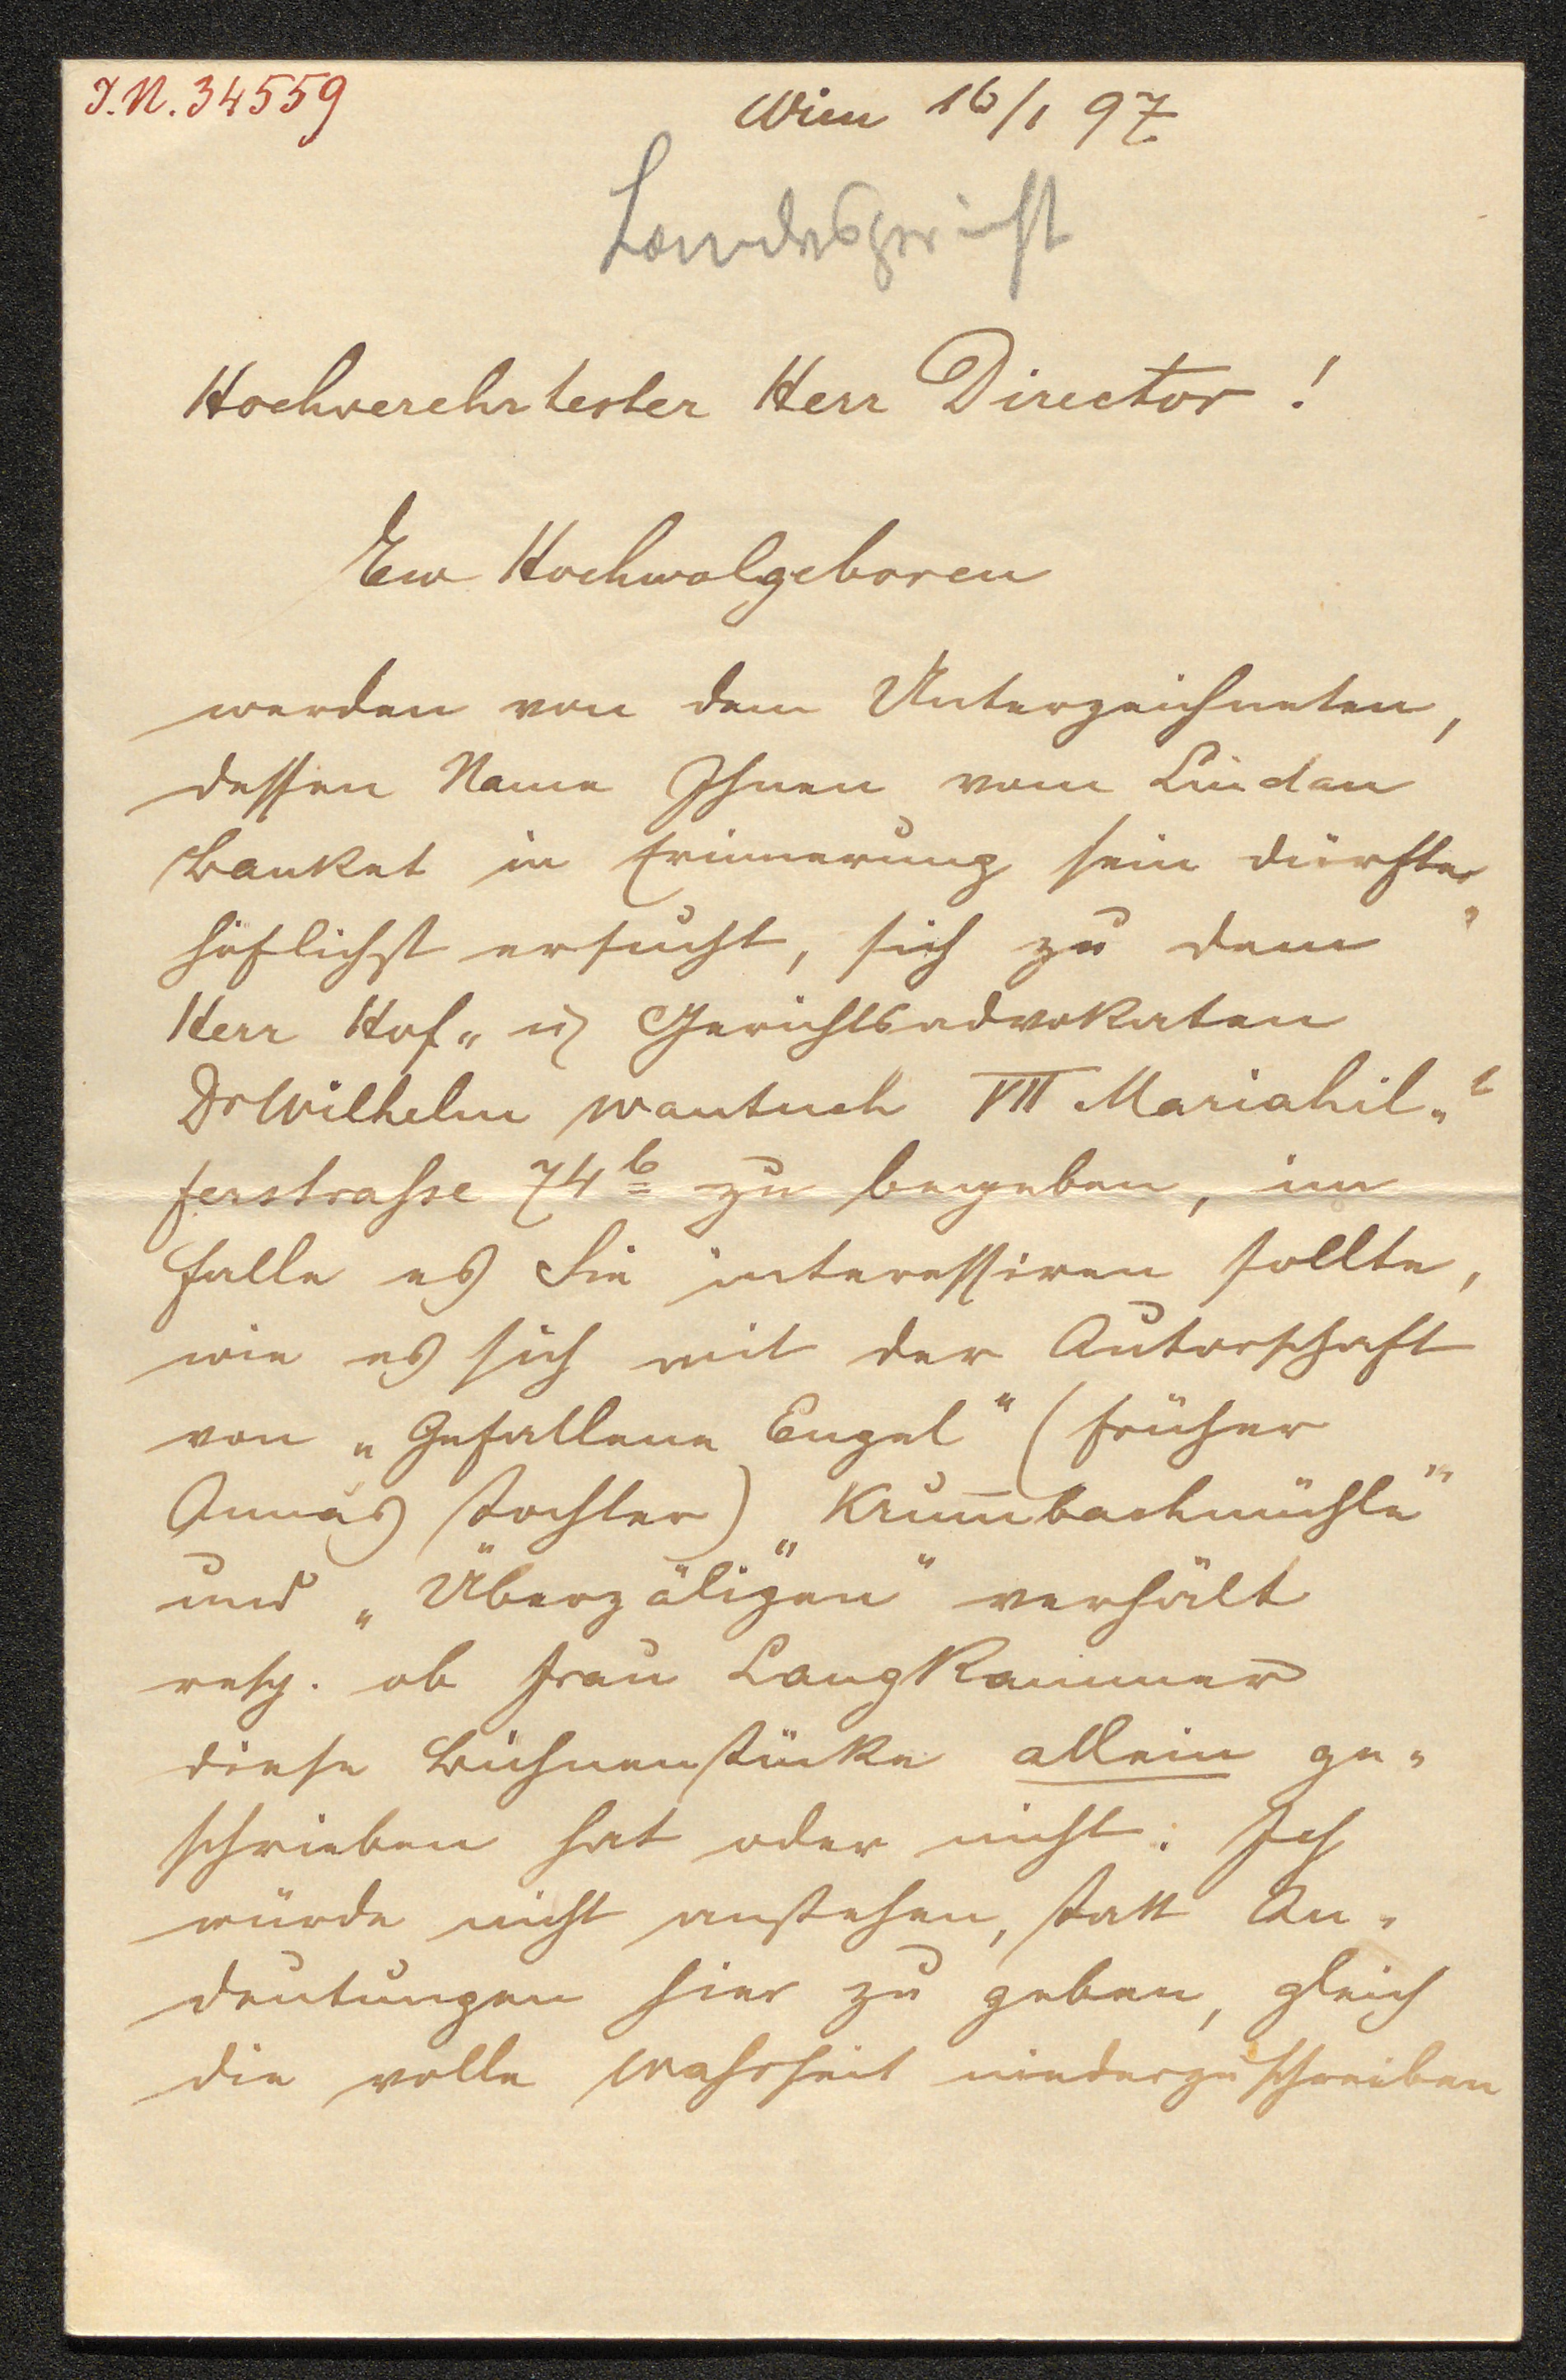 J.N. 34559
Wien 16/1 97
Landesgericht
Hochverehrtester Herr Director !
Ew Hochwolgeboren
werden von dem Unterzeichneten,
dessen Name Ihnen vom Lindau
Banket in Erinnerung sein dürfte,
höflichst ersucht, sich zu dem
Herr Hof- u Gerichtsadvokaten
Dr Wilhelm Wantuch VII Mariahil-
ferstrasse 74b zu begeben, im
Falle es Sie interessiren sollte,
wie es sich mit der Autorschaft
von „Gefallene Engel" (früher
Annas Tochter) „Krum̅bachmühle"
und „Überzäligen" verhält
resp. ob Frau Langkammer
diese Bühnenstücke allein ge-
schrieben hat oder nicht. Ich
würde nicht anstehen, statt An-
deutungen hier zu geben, gleich
die volle Wahrheit niederzuschreiben